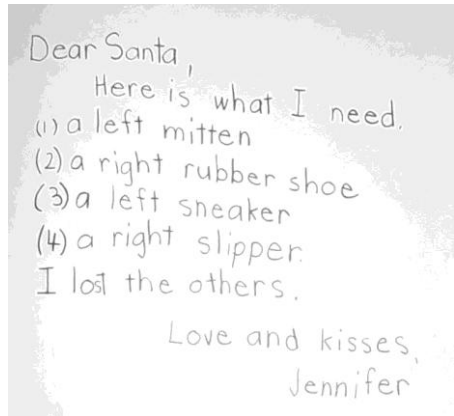 Dear Santa,
Here is what I need.
(1) a left mitten
(2) a right rubber shoe
(3) a left sneaker
(4) a right slipper.
I lost the others.
Love and kisses,
Jennifer